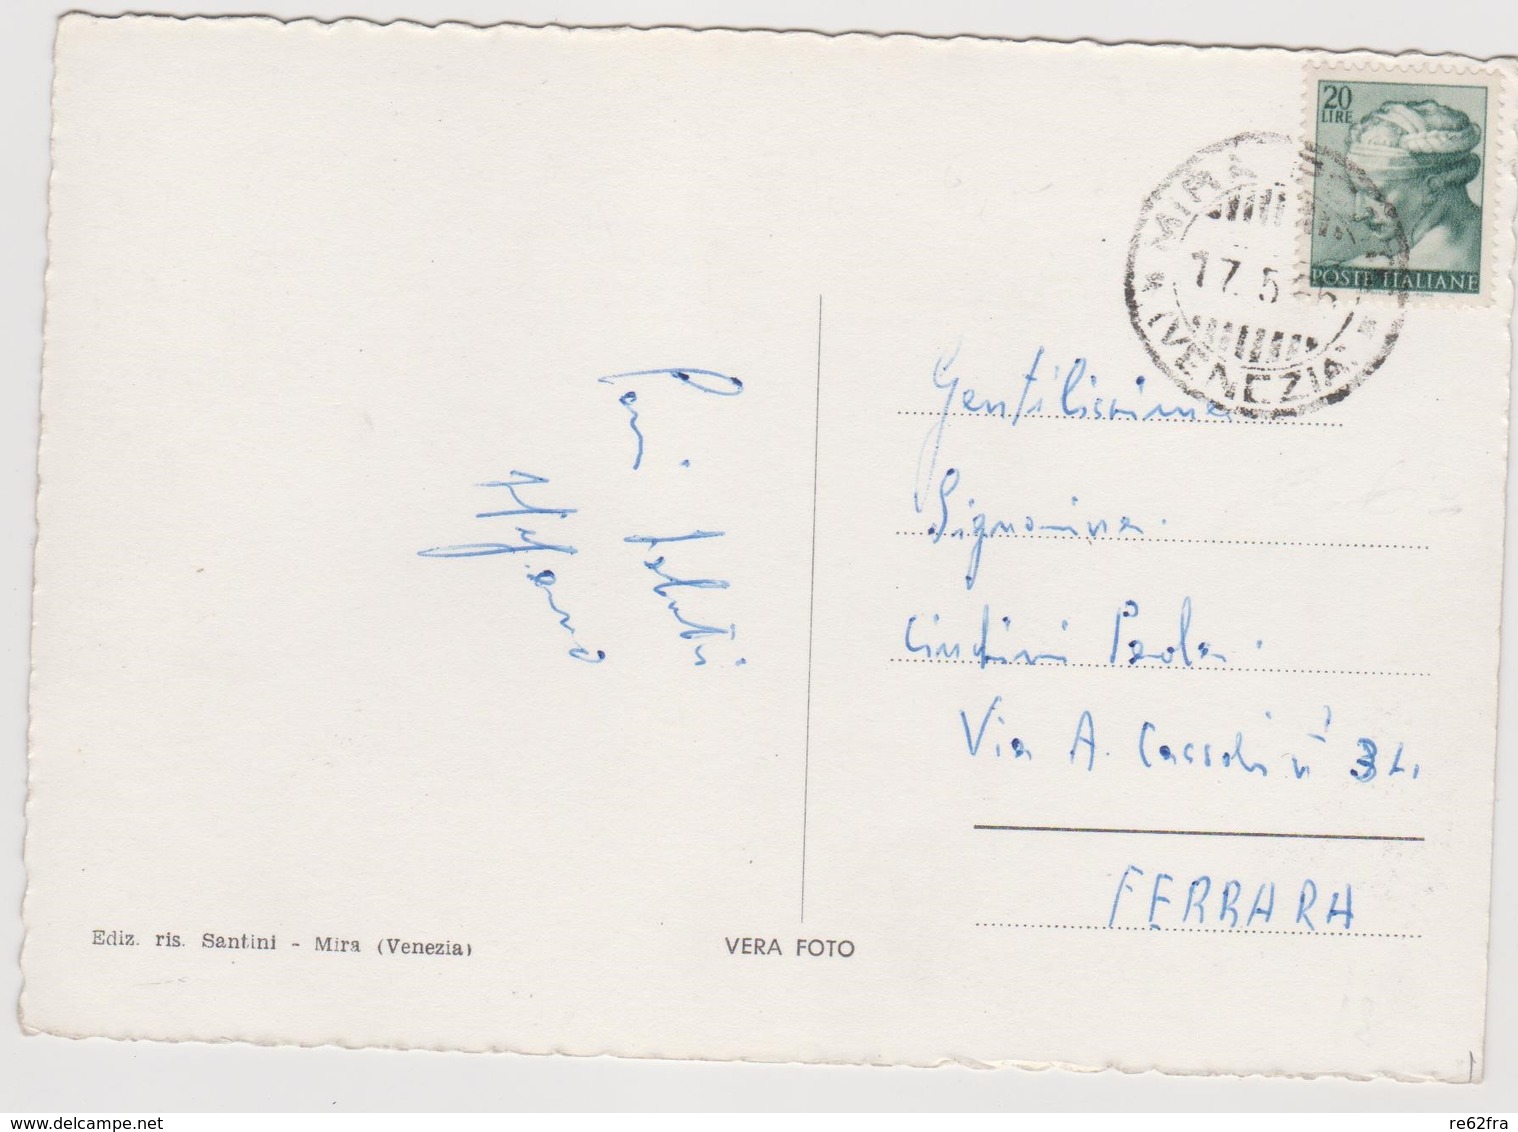 20
LIRE
POSTE ITALIANE
MIRA
17.5
(VENEZIA)
Cari saluti
Stefano
Gentilissima
Signorina
Paola
Via A. Cassoli n°
FERRARA
Ediz. ris. Santini - Mira (Venezia)
VERA FOTO
delcampe.net
re62fra